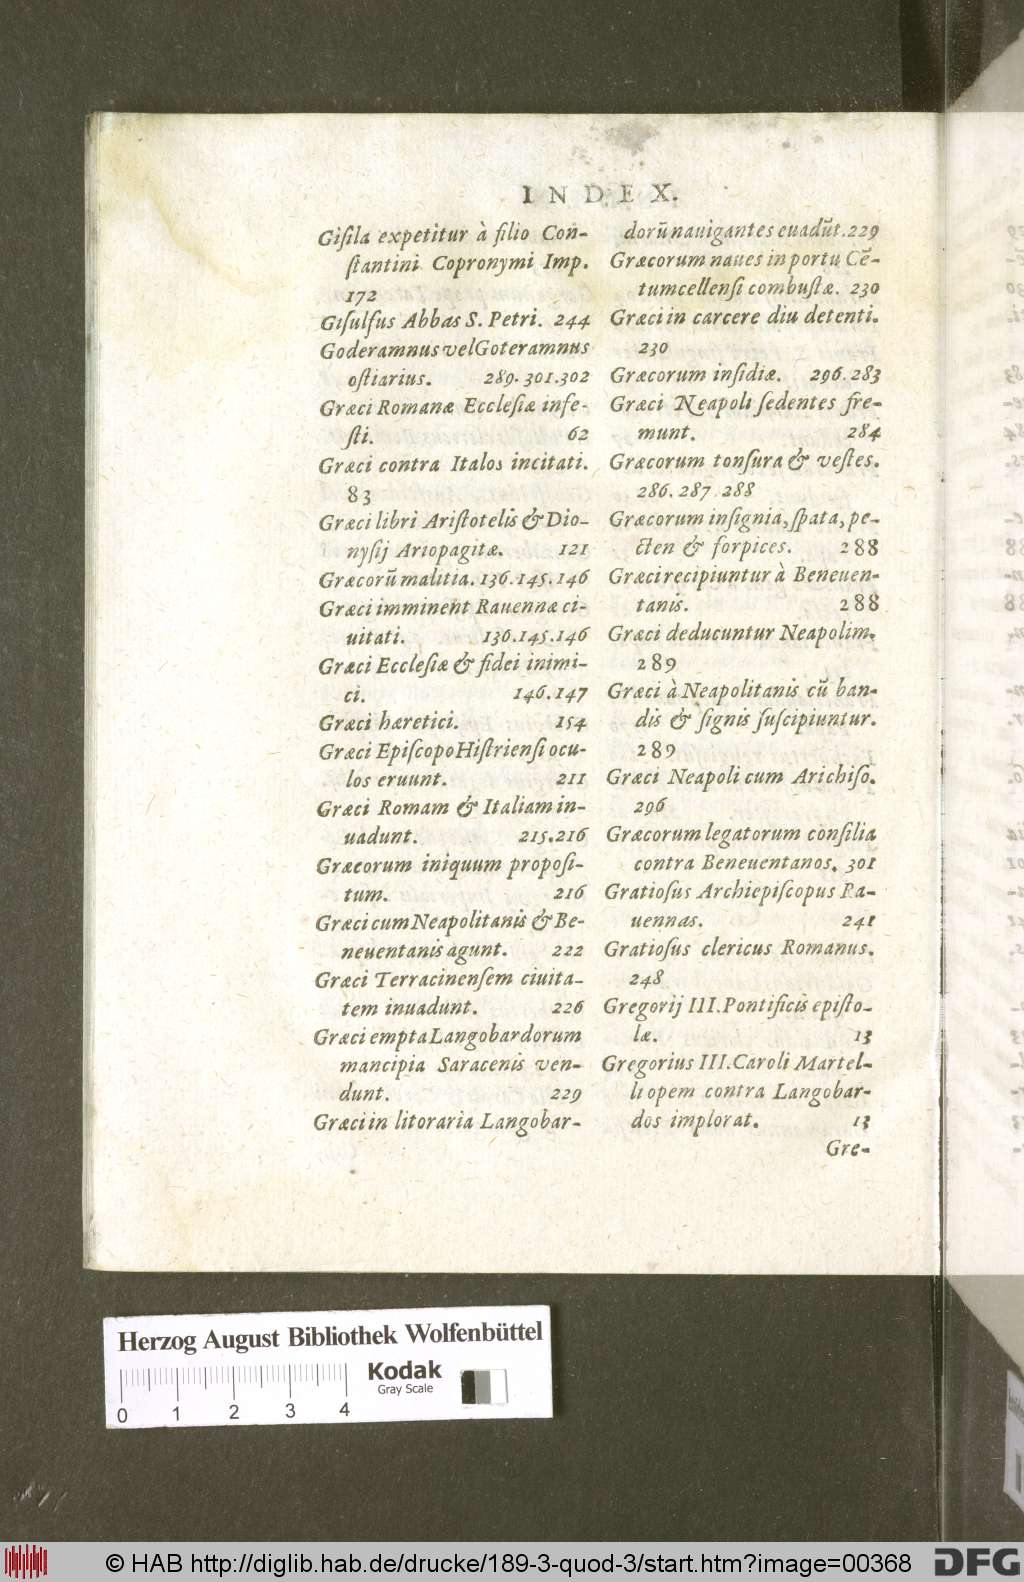 INDEX.
Giſila expetitur à filio Con-
ſtantini Copronymi Imp.
172
Giſulfus Abbas S. Petri. 244
Goderamnus vel Goteramnus
oſtiarius. 289. 301. 302
Græci Romanæ Eccleſiæ infe-
ſti. 62
Græci contra Italos incitati.
83
Græci libri Ariſtotelis & Dio-
nyſij Ariopagitæ. 121
Græcorū malitia. 136. 145. 146
Græci imminent Rauennæ ci-
uitati. 136. 145. 146
Græci Eccleſiæ & fidei inimi-
ci. 146. 147
Græci hæretici. 154
Græci Epiſcopo Hiſtrienſi ocu-
los eruunt. 211
Græci Romam & Italiam in-
uadunt. 215. 216
Græcorum iniquum propoſi-
tum. 216
Græci cum Neapolitanis & Be-
neuentanis agunt. 222
Græci Terracinenſem ciuita-
tem inuadunt. 226
Græci empta Langobardorum
mancipia Saracenis ven-
dunt. 229
Græci in litoraria Langobar-
dorū nauigantes euadūt. 229
Græcorum naues in portu Cē-
tumcellenſi combuſtæ. 230
Græci in carcere diu detenti.
230
Græcorum inſidiæ. 296. 283
Græci Neapoli ſedentes fre-
munt. 284
Græcorum tonſura & veſtes.
286. 287. 288
Græcorum inſignia, ſpata, pe-
cten & forpices. 288
Græci recipiuntur à Beneuen-
tanis. 288
Græci deducuntur Neapolim.
289
Græci à Neapolitanis cū ban-
dis & ſignis ſuſcipiuntur.
289
Græci Neapoli cum Arichiſo.
296
Græcorum legatorum conſilia
contra Beneuentanos. 301
Gratioſus Archiepiſcopus Ra-
uennas. 241
Gratioſus clericus Romanus.
248
Gregorij III. Pontificis epiſto-
læ. 13
Gregorius III. Caroli Martel-
li opem contra Langobar-
dos implorat. 13
Gre-
Herzog August Bibliothek Wolfenbüttel
Kodak
Gray Scale
0 1 2 3 4
© HAB http://diglib.hab.de/drucke/189-3-quod-3/start.htm?image=00368
DFG